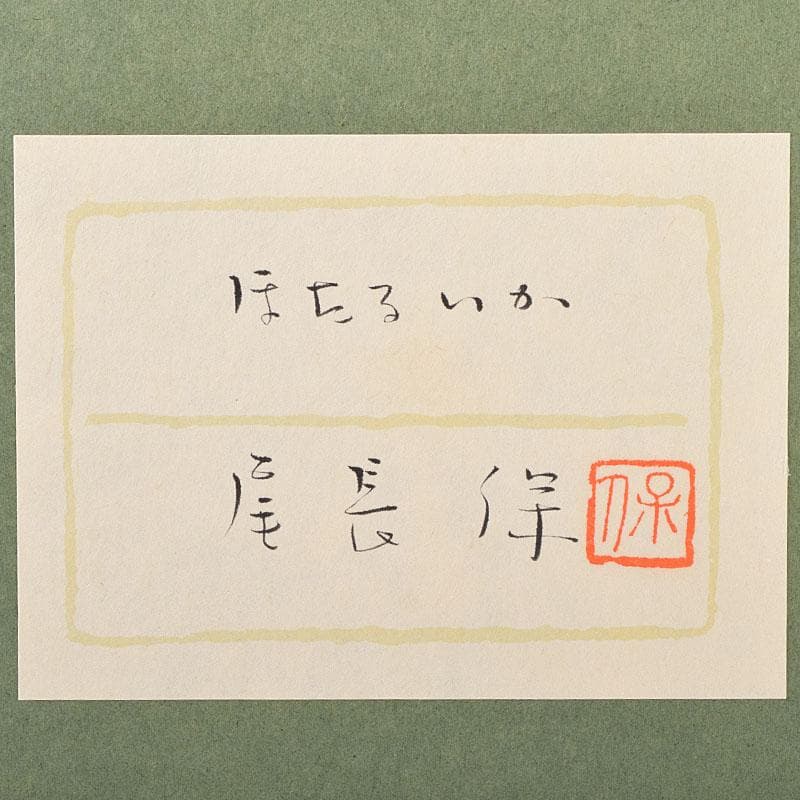 ほたるいか
尾長保 保